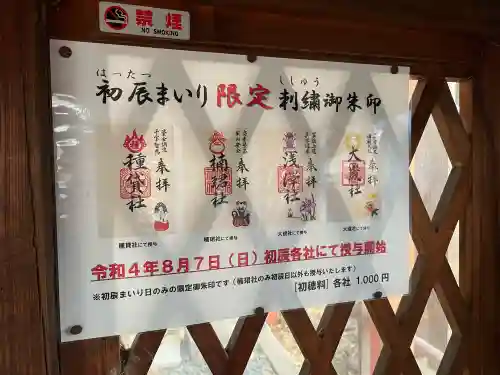 禁煙
NO SMOKING
はったつ ししゅう
初辰まいり限定刺繍御朱印
奉拝
種貸社
奉拝
楠珺社
奉拝
浅澤社
奉拝
大歳社
種貸社にて授与
楠珺社にて授与
大歳社にて授与
大歳社にて授与
令和4年8月7日（日）初辰各社にて授与開始
※初辰まいり日のみの限定御朱印です（楠珺社のみ初辰日以外も授与いたします）
［初穂料］各社 1,000円